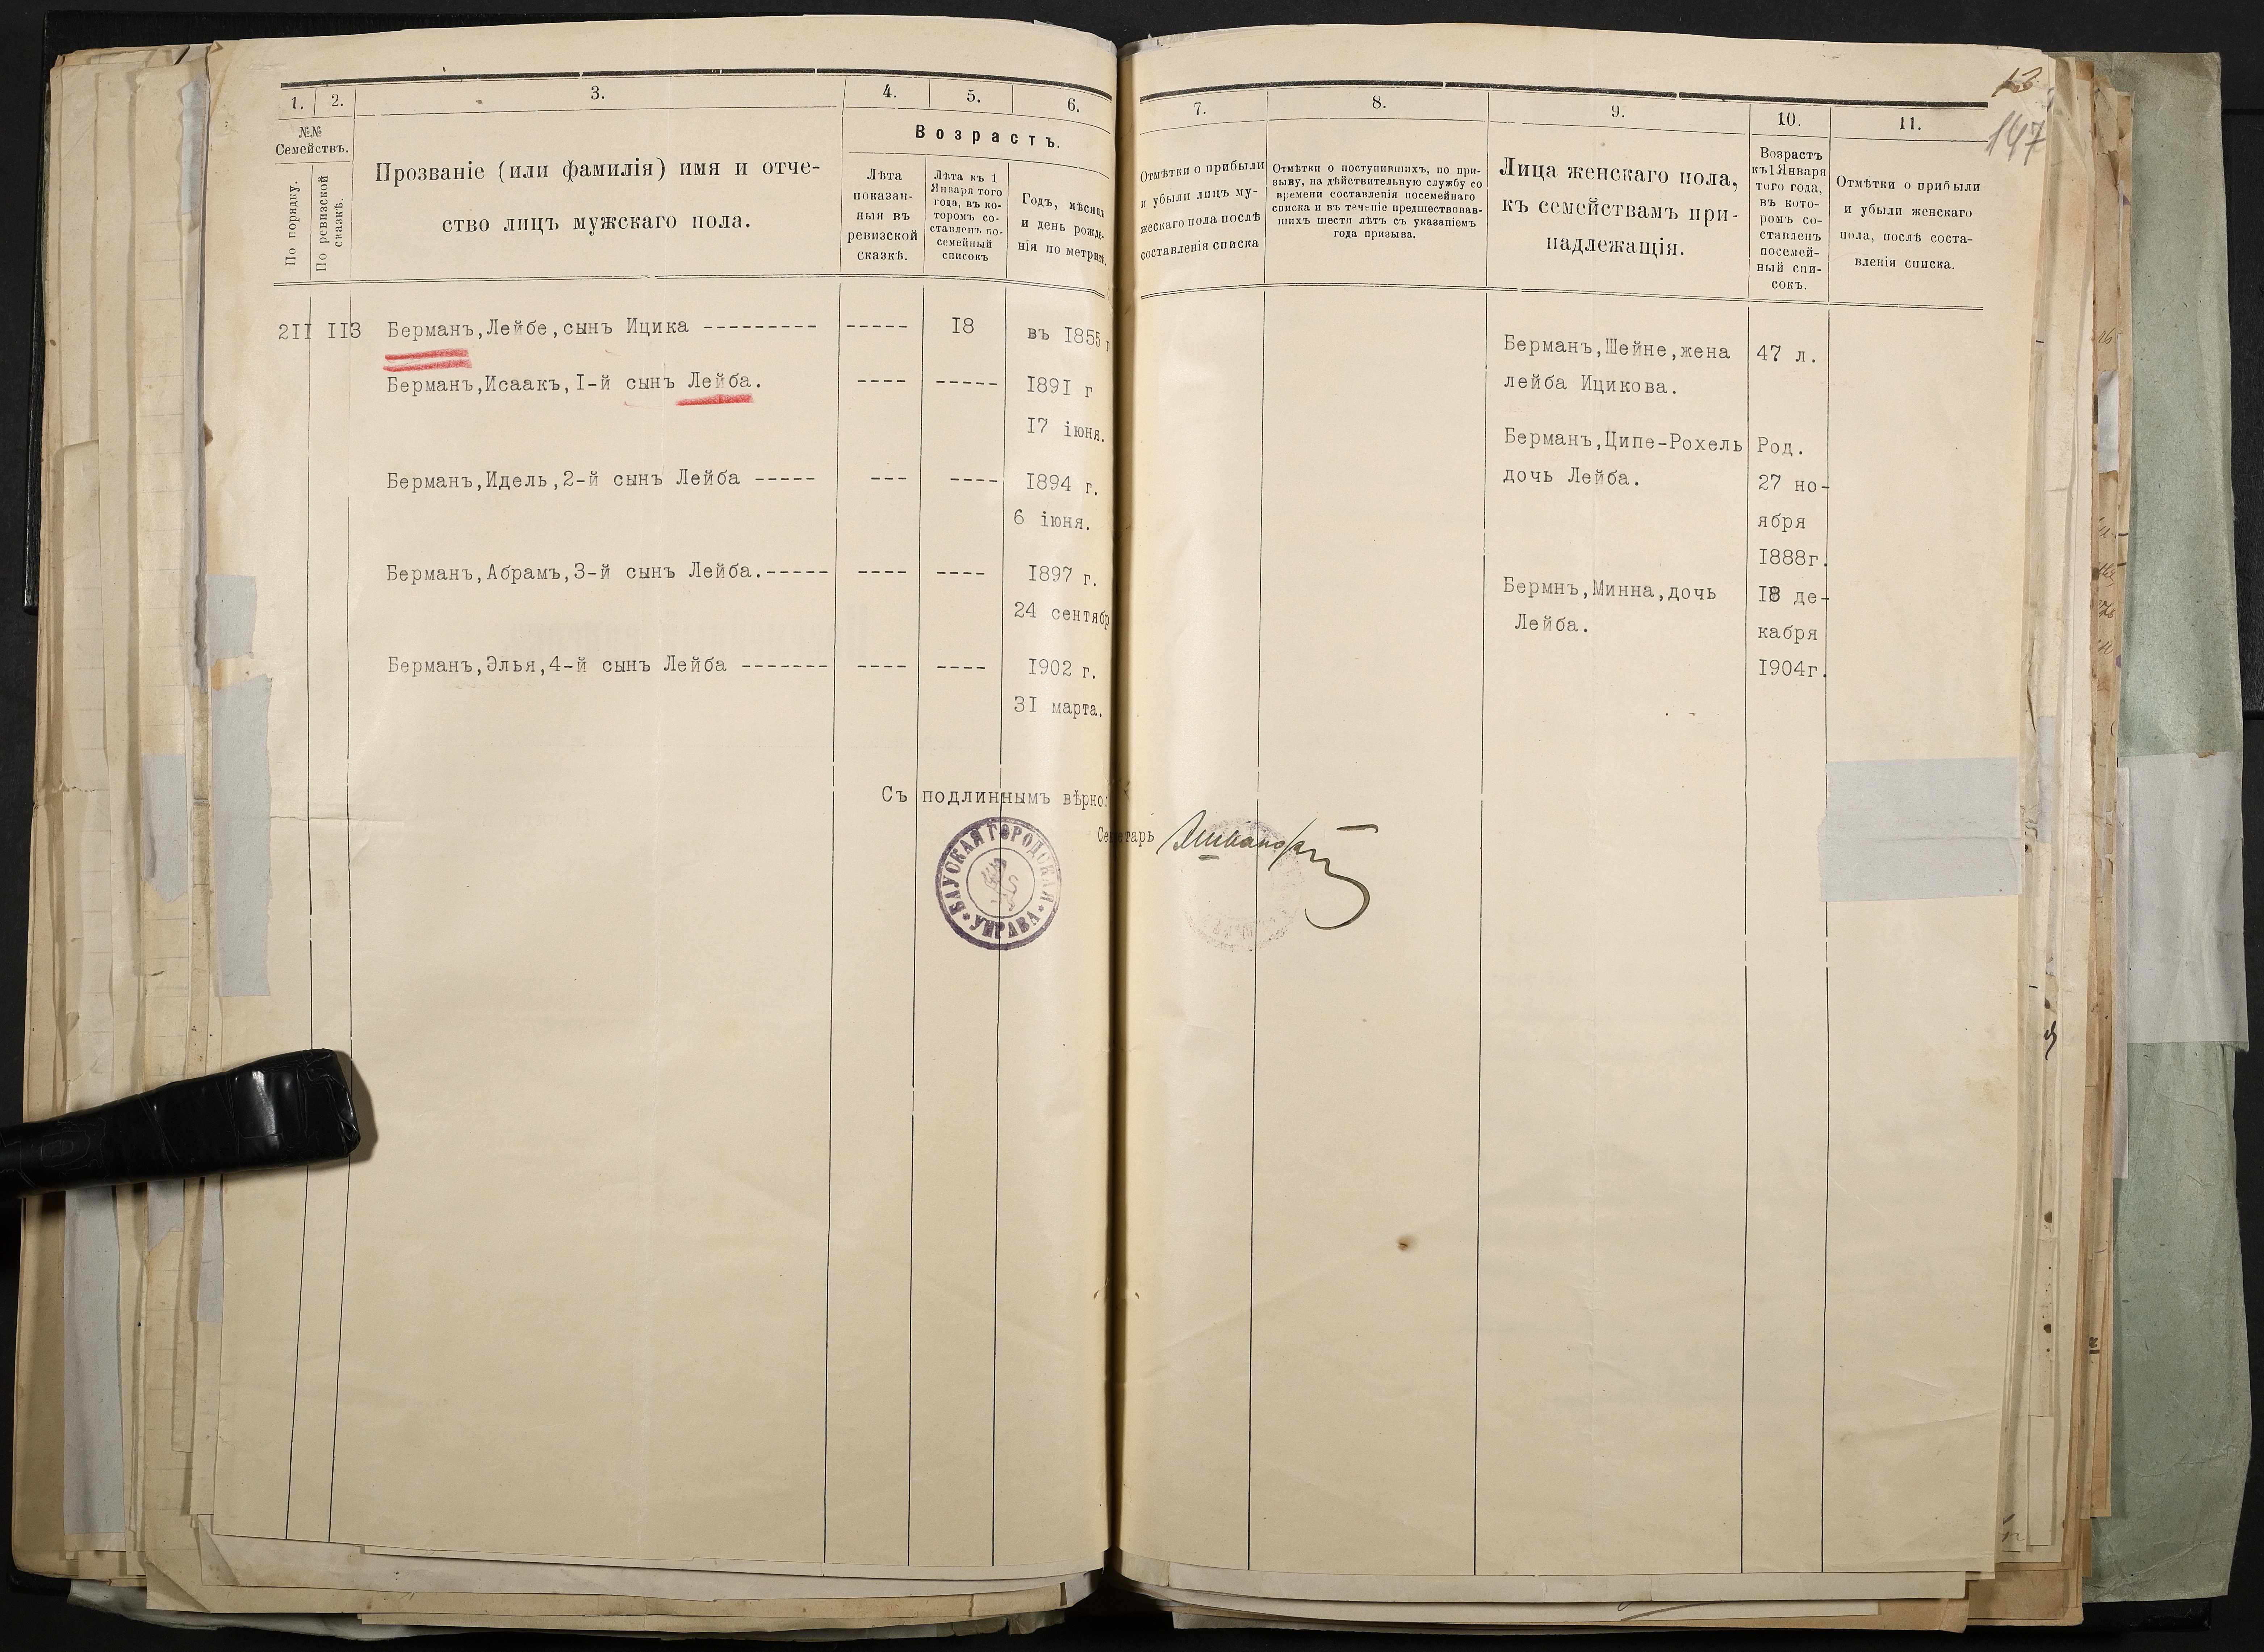 1.
2.
3.
4.
5.
6.
№№
Семействъ.
По порядку.
По ревизской
сказкѣ.
Прозваніе (или фамилія) имя и отче-
ство лицъ мужскаго пола.
Возрастъ.
Лѣта
показан-
ныя въ
ревизской
сказкѣ.
Лѣта къ 1
Января того
года, въ ко-
торомъ со-
ставленъ по-
семейный
списокъ
Годъ, мѣсяцъ
и день рожде-
нія по метрикѣ.
211 113 Берманъ,Лейбе,сынъ Ицика --------- ----- 18 въ 1855 г
Берманъ,Исаакъ,1-й сынъ Лейба. ---- ----- 1891 г
17 іюня.
Берманъ,Идель,2-й сынъ Лейба ----- --- ---- 1894 г.
6 іюня.
Берманъ,Абрамъ,3-й сынъ Лейба.----- ---- ---- 1897 г.
24 сентябр
Берманъ,Элья,4-й сынъ Лейба ------- ---- ---- 1902 г.
31 марта.
Съ подлиннымъ вѣрно:
Секретарь
БАУСКАЯ ГОРОДСКАЯ
УПРАВА
13
147
7.
8.
9.
10.
11.
Отмѣтки о прибыли
и убыли лицъ му-
жескаго пола послѣ
составленія списка
Отмѣтки о поступившихъ, по при-
зыву, на дѣйствительную службу со
времени составленія посемейнаго
списка и въ теченіе предшествовав-
шихъ шести лѣтъ съ указаніемъ
года призыва.
Лица женскаго пола,
къ семействамъ при-
надлежащія.
Возрастъ
къ 1 Января
того года,
въ кото-
ромъ со-
ставленъ
посемей-
ный спи-
сокъ.
Отмѣтки о прибыли
и убыли женскаго
пола, послѣ соста-
вленія списка.
Берманъ,Шейне,жена 47 л.
лейба Ицикова.
Берманъ,Ципе-Рохель Род.
дочь Лейба. 27 но-
ября
1888г.
Бермнъ,Минна,дочь 18 де-
Лейба. кабря
1904г.